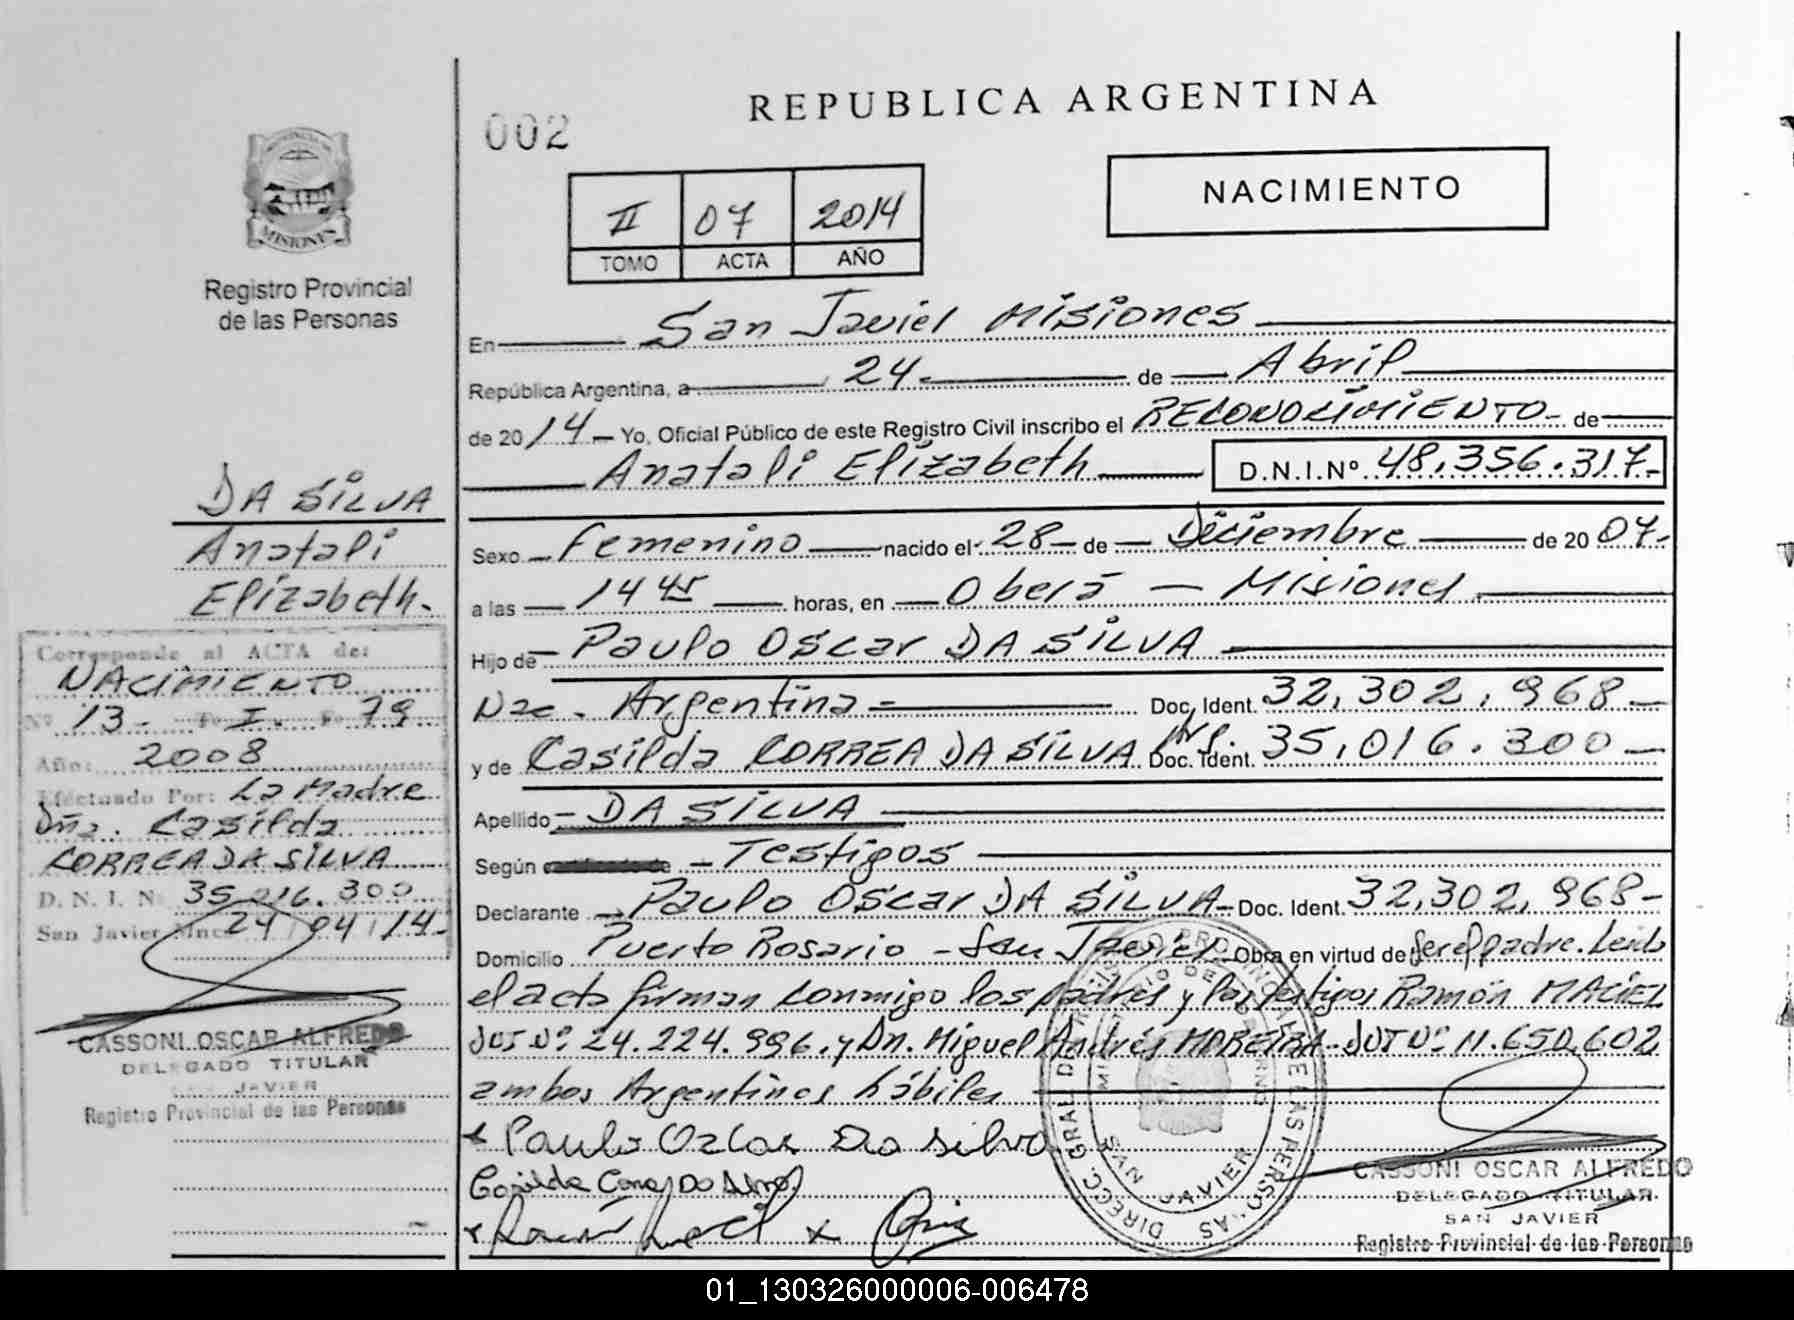 REPUBLICA ARGENTINA
002
NACIMIENTO
II 07 2014
TOMO ACTA AÑO
MISIONES
Registro Provincial
de las Personas
En San Javier Misiones
República Argentina, a 24 de Abril
de 2014 Yo, Oficial Público de este Registro Civil inscribo el RECONOCIMIENTO de
Anatali Elizabeth D.N.I.Nº 48.356.317
Sexo Femenino nacido el 28 de Diciembre de 2007
a las 14 45 horas, en Oberá - Misiones
Hijo de Paulo Oscar DA SILVA
Nac. Argentina Doc. Ident. 32,302,968
y de Casilda CORREA DA SILVA Doc. Ident. 35,016.300
Apellido DA SILVA
Según Testigos
Declarante Paulo Oscar DA SILVA Doc. Ident. 32,302,968
Domicilio Puerto Rosario - San Javier Obra en virtud de ser el padre. Leida
el acta firman conmigo los padres y los testigos Ramón MACIEL
Nº 24.224.996. y Dn. Miguel Andrés MOREIRA Nº 11.650.602
ambos Argentinos hábiles
Paulo Oscar Da Silva
CASSONI OSCAR ALFREDO
DELEGADO TITULAR
SAN JAVIER
Registro Provincial de las Personas
DA SILVA
Anatali
Elizabeth.
Corresponde al ACTA de:
NACIMIENTO
Nº 13 Tº I Fº 79
Año: 2008
Efectuado Por: La Madre
Dña. Casilda
CORREA DA SILVA
D. N. I. N 35.016.300
San Javier Mnes 24/04/14
CASSONI OSCAR ALFREDO
DELEGADO TITULAR
SAN JAVIER
Registro Provincial de las Personas
SAN JAVIER
01_130326000006-006478